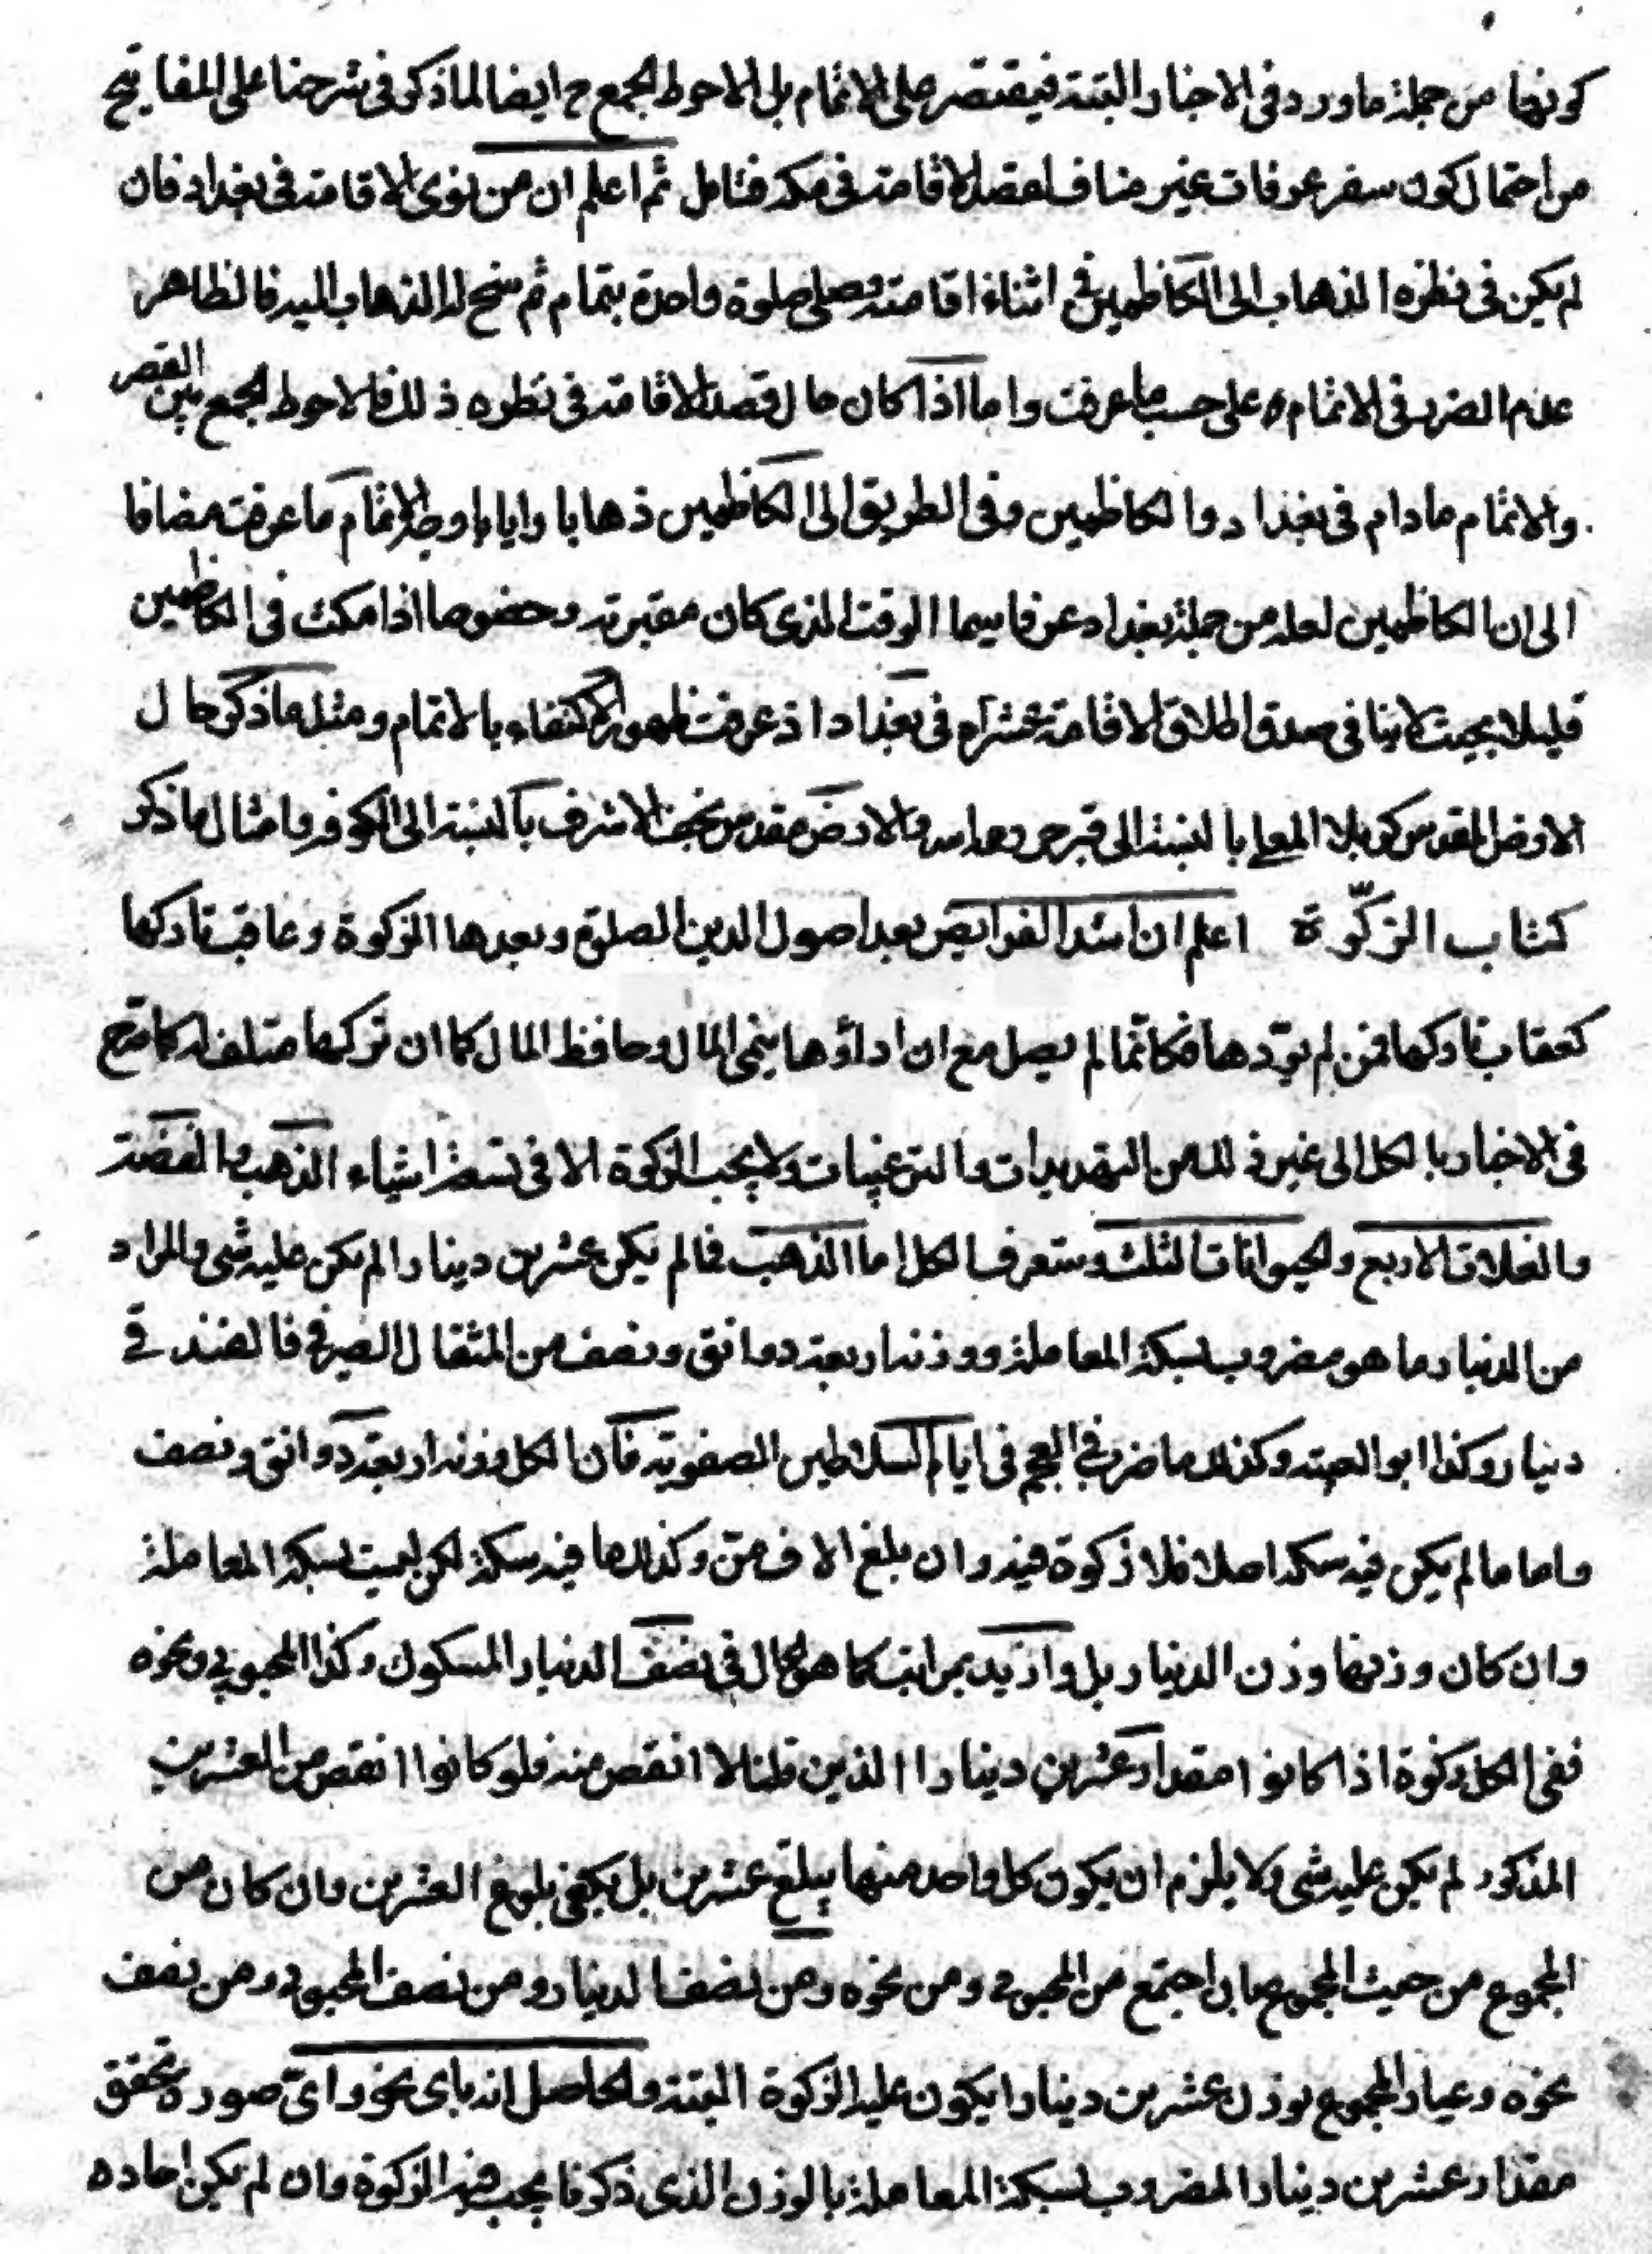 كونها من جملة ما ورد فى الاخبار البتة فيقتصر على الاتمام بل الاحوط الجمع ح ايضا لما ذكر فى شرحنا على المفاتيح
من احتمال كون سفر عرفات غير مناف لقصد الاقامة فى مكة فتامل ثم اعلم ان من نوى الاقامة فى بغداد فان
لم يكن فى نظره الذهاب الى الكاظمين فى اثناء اقامته وصلى صلوة واحدة بتمام ثم سنح له الذهاب اليه فالظاهر
عدم الضرر فى الاتمام على حسب ما عرفت واما اذا كان حال قصد الاقامة فى نظره ذلك فالاحوط الجمع بين القصر
والاتمام مادام فى بغداد والكاظمين وفى الطريق الى الكاظمين ذهابا وايابا وجه الاتمام ما عرفت مضافا
الى ان الكاظمين لعله من جملة بغداد عرفا سيما الوقت الذى كان مقبرته وخصوصا اذا مكث فى الكاظمين
قليلا بحيث لا ينافى صدق اطلاق الاقامة عشرة فى بغداد اذ عرفت ظهور الاكتفاء بالاتمام ومثل ما ذكر حال
الارض المقدس كربلا المعلى بالنسبة الى قبر حر والارض مقدس نجف الاشرف بالنسبة الى الكوفة وامثال ما ذكر
كتاب الزكوة اعلم ان اشد الفرايض بعد اصول الدين الصلوة وبعدها الزكوة وعاقبة تاركها
كعقاب تاركها فمن لم يؤدها فكانما لم يصل مع ان اداؤها ينمى المال وحافظ المال كما ان تركها متلف له كما صرح
فى الاخبار بالكل الى غير ذلك من التهديدات والترغيبات ولا يجب الزكوة الا فى تسعة اشياء الذهب والفضة
والغلات الاربع والحيوانات الثلث وستعرف الكل اما الذهب فما لم يكن عشرين دينارا لم يكن عليه شى والمراد
من الدينار ما هو مضروب بسكة المعاملة ووزنه اربعة دوانق ونصف من المثقال الصيرفى فالفندقى
دينار وكذا ابو وكذلك ما ضرب فى العجم فى ايام السلاطين الصفوية فان الكل وزنه اربعة دوانق ونصف
واما ما لم يكن فيه سكة اصلا فلا زكوة فيه وان بلغ الاف من وكذلك ما فيه سكة لكن ليست بسكة المعاملة
وان كان وزنها وزن الدينار بل وازيد بمراتب كما هو الحال فى نصف الدينار المسكوك وكذا المحبوبى ونحوه
ففى الكل زكوة اذا كانوا مقدار عشرين دينارا الذين قلنا لا انقص منه فلو كانوا انقص من العشرين
المذكور لم يكن عليه شى ولا يلزم ان يكون كل واحد منها يبلغ عشرين بل يكفى بلوغ العشرين وان كان من
المجموع من حيث المجموع بان اجتمع من المحبوبى ومن نحوه ومن نصف الدينار ومن نصف المحبوبى ومن نصف
نحوه وعيار المجموع بوزن عشرين دينارا يكون عليه الزكوة البتة والحاصل انه باى نحو واى صورة تحقق
مقدار عشرين دينارا المضروب بسكة المعاملة بالوزن الذى ذكرنا يجب فيه الزكوة وان لم يكن احاده